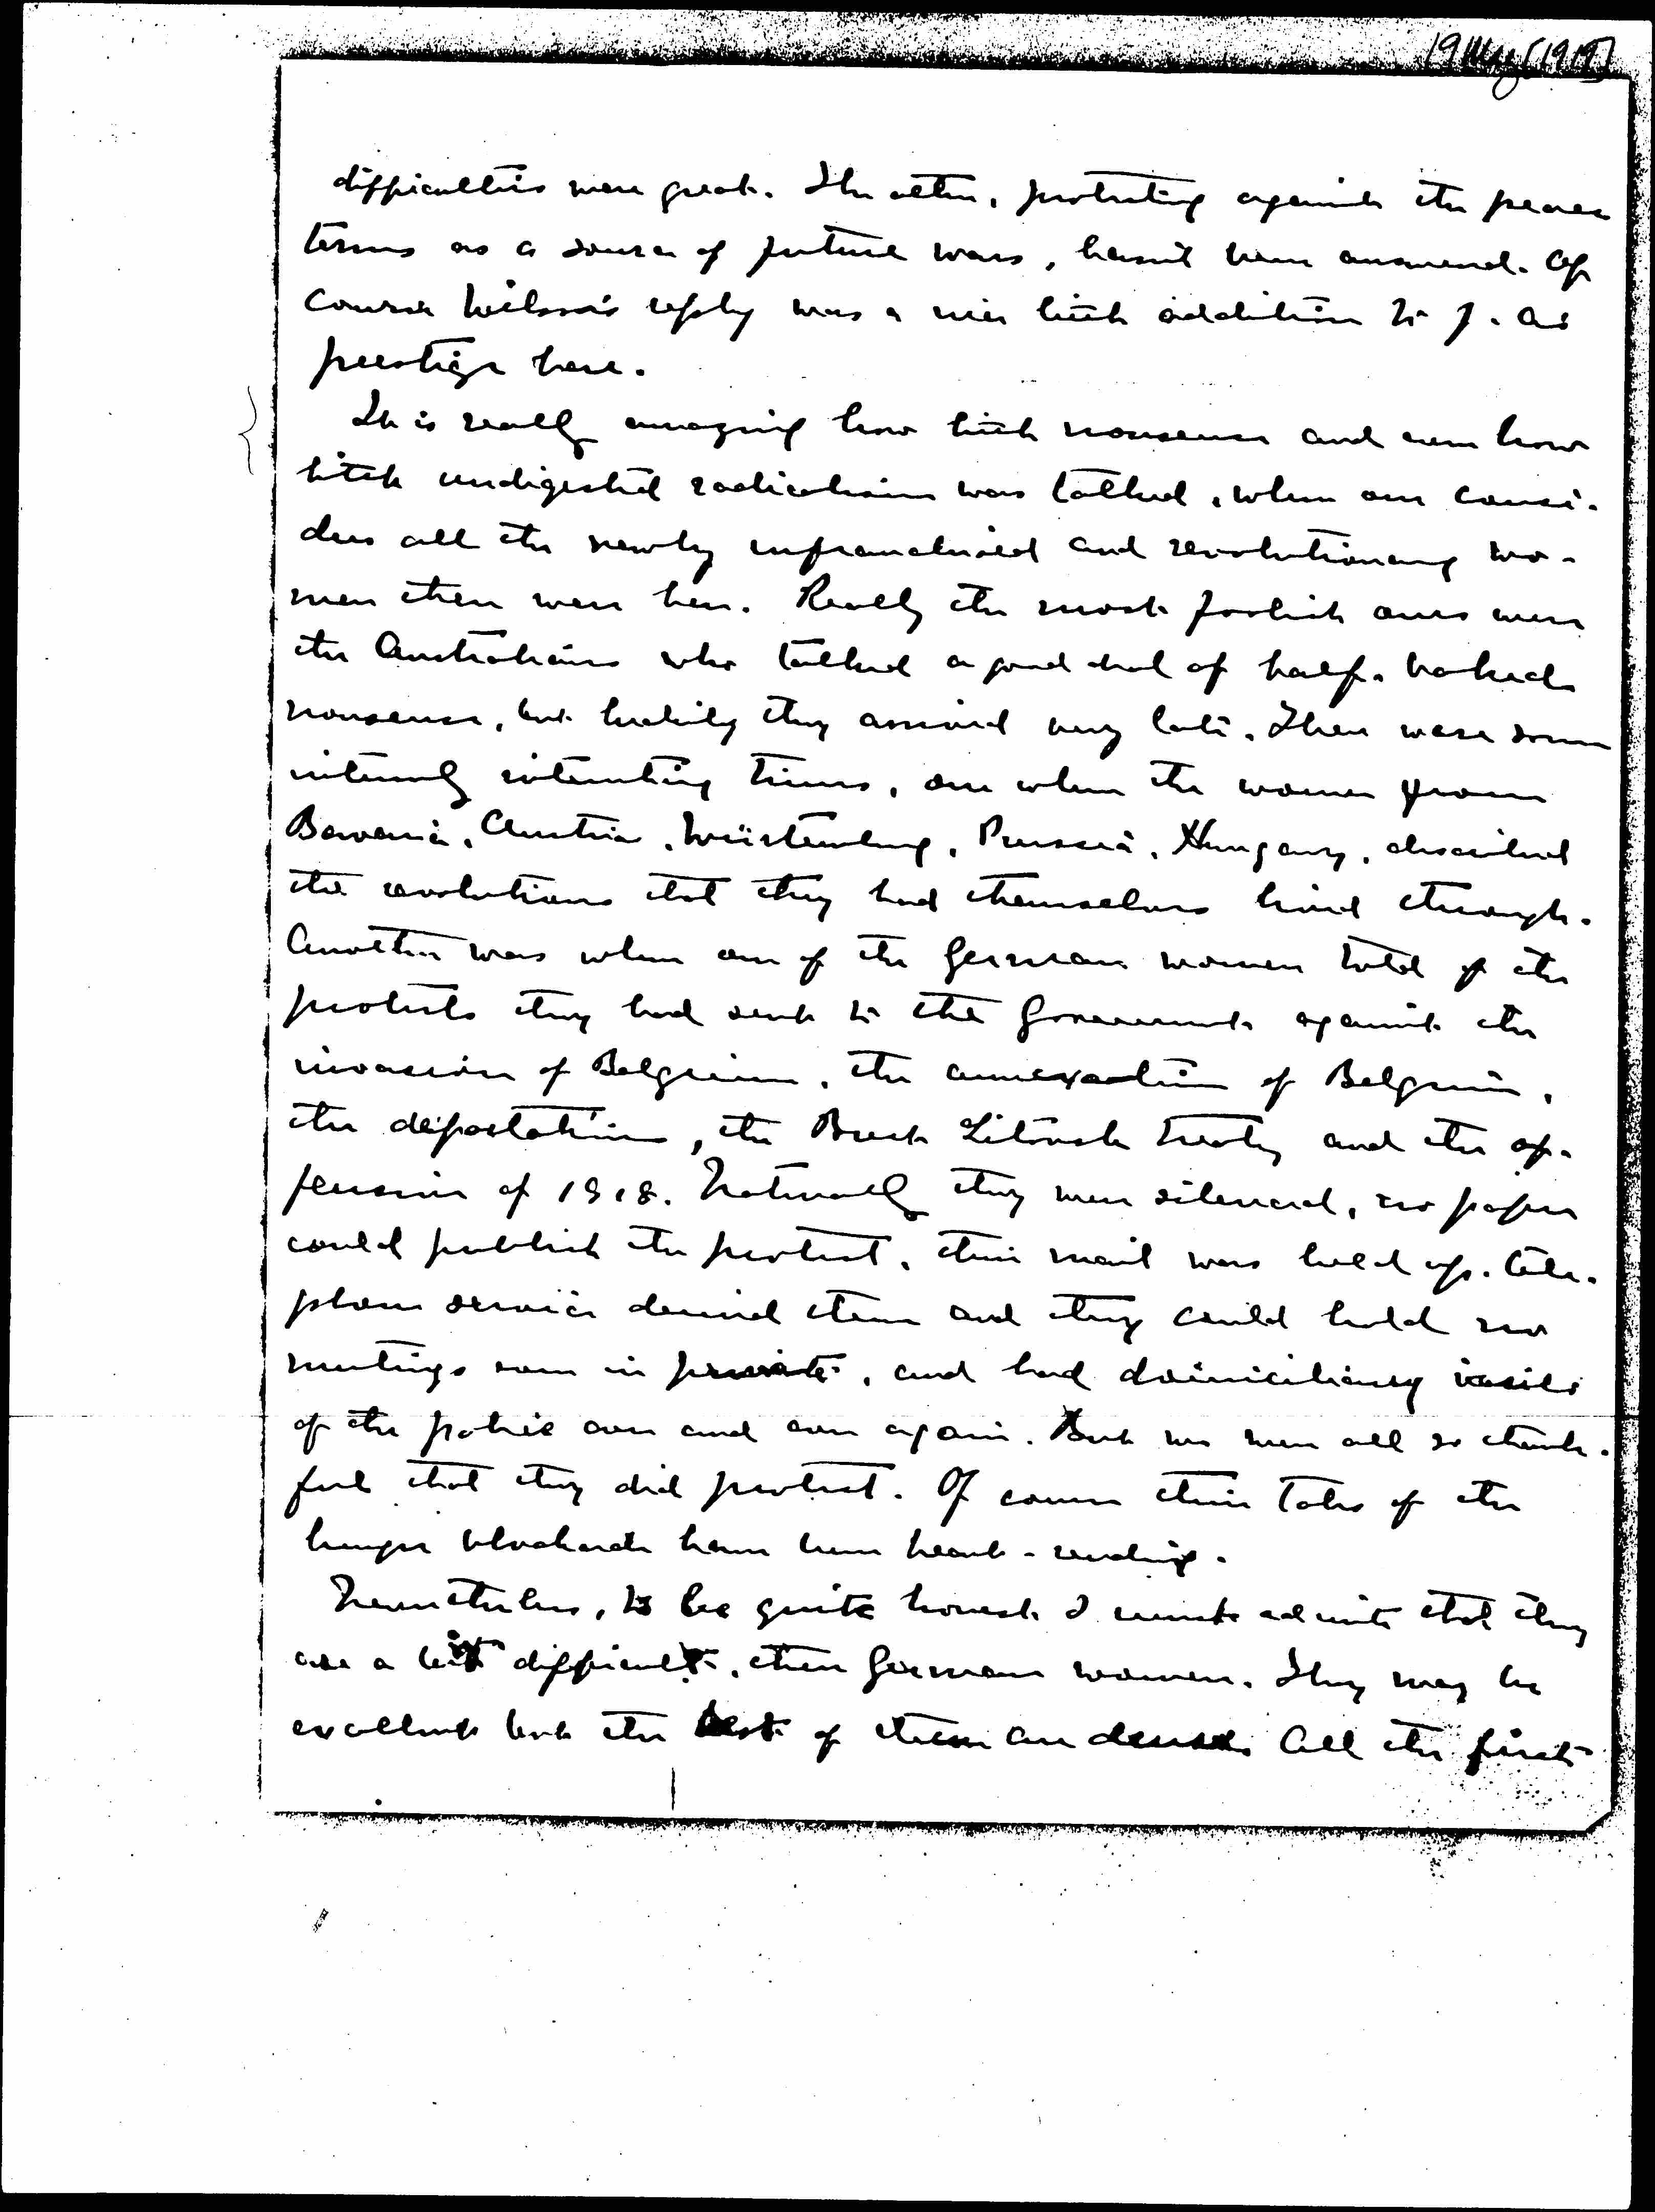 19 May [1919]
difficulties were great. The other, protesting against the peace
terms as a source of future wars, hasn't been answered. Of
course Wilson's reply was a nice little addition to J. A's
prestige here.
It is really amazing how little nonsense and even how
little undigested radicalism was talked, when one consi-
ders all the newly enfranchised and revolutionary wo-
men there were here. Really the most foolish ones were
the Australians who talked a good deal of half-baked
nonsense, but luckily they arrived very late. There were some
intensely interesting times, one when the women from
Bavaria, Austria, Würtemburg, Prussia, Hungary, described
the revolutions that they had themselves lived through.
Another was when one of the German women told of the
protests they had sent to the Government against the
invasion of Belgium, the annexation of Belgium,
the deportations, the Brest Litovsk treaty and the of-
fensive of 1918. Naturally they were silenced, no paper
could publish the protest, their mail was held up, tele-
phone service denied them and they could hold no
meetings even in private, and had domiciliary visits
of the police over and over again. But we were all so thank-
ful that they did protest. Of course their tales of the
hunger blockade have been heart-rending.
Nevertheless, to be quite honest I must admit that they
are a bit difficult, these German women. They may be
excellent but the best of them are dense. All the first